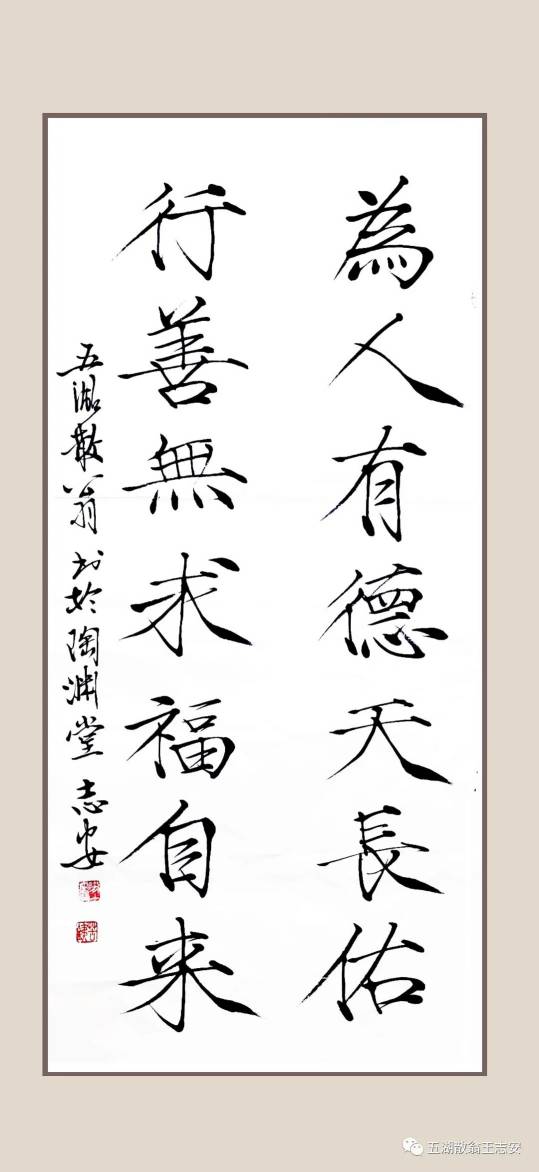 為人有德天長佑
行善無求福自来
五湖散翁书於陶渊堂 志安
五湖散翁王志安